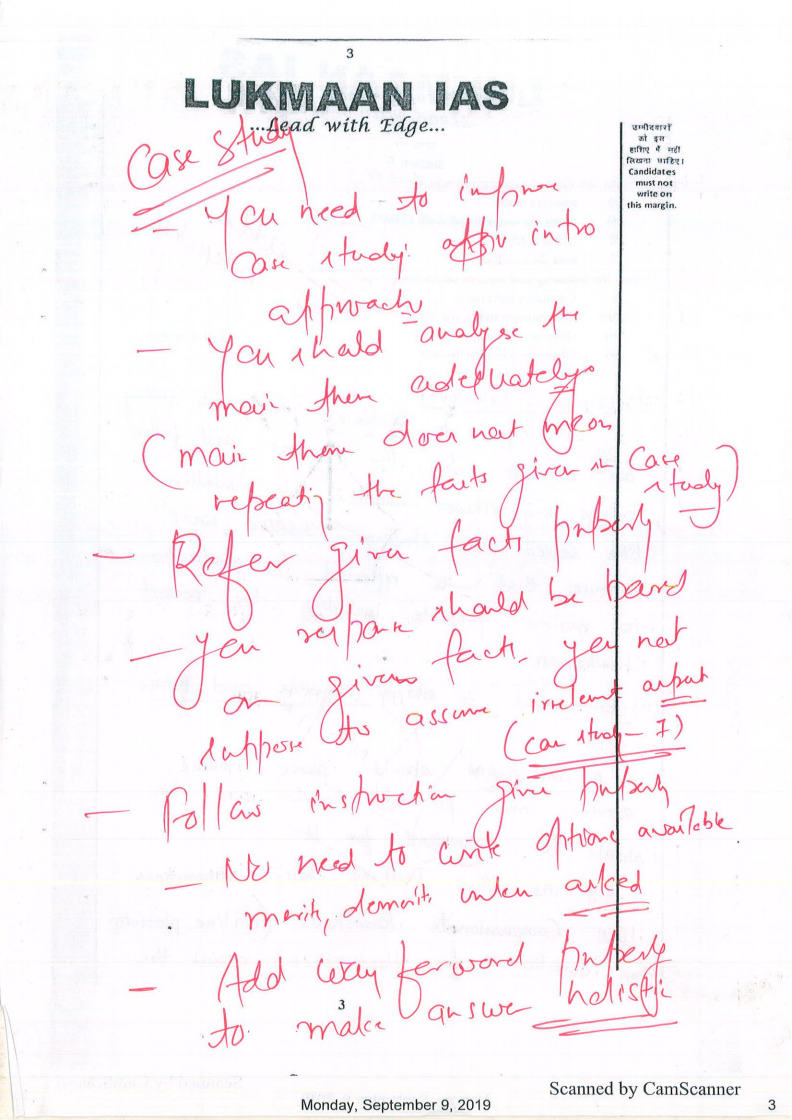 3
LUKMAAN IAS
...Lead with Edge...
उम्मीदवारों
को इस
हाशिए में नहीं
लिखना चाहिए।
Candidates
must not
write on
this margin.
Case Study
- You need to improve
Case study: intro
approach
- You should analyse the
main theme adequately
(main theme does not mean
repeating the facts given in Case
study)
- Refer given facts properly
- your response should be based
on given facts, you not
suppose to assume irrelevant aspect
(case study - 7)
- Follow instruction given properly
- No need to write options available
merits, demerits unless asked
- Add way forward properly
to make answer holistic
3
Scanned by CamScanner
Monday, September 9, 2019
3